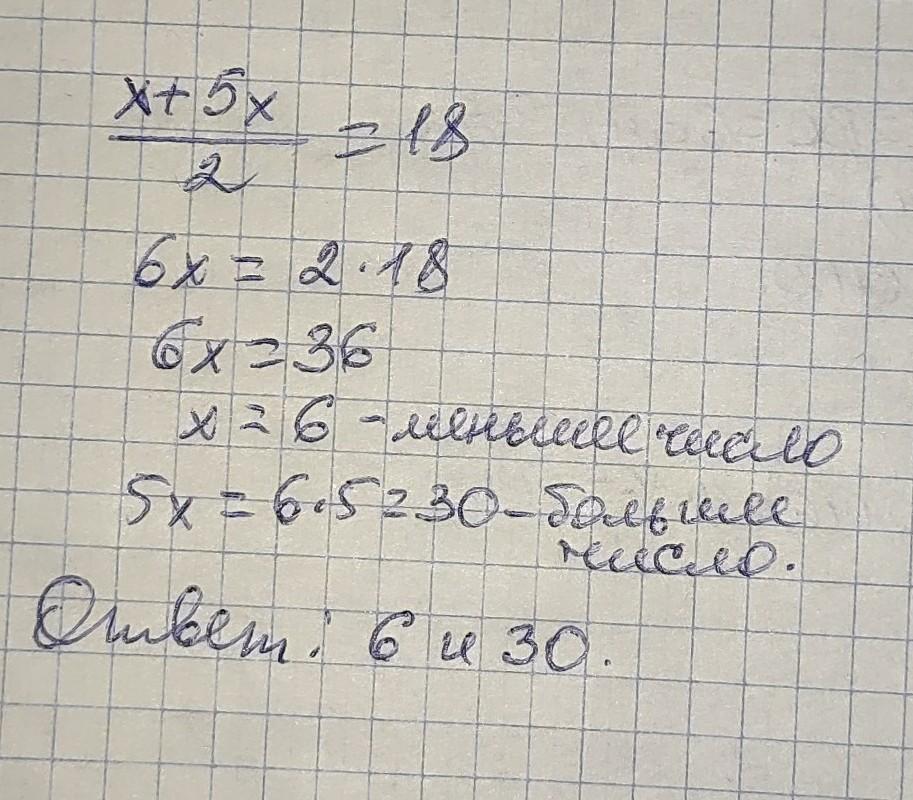 x+5x
—— = 18
2
6x = 2·18
6x = 36
x = 6 - меньшее число
5x = 6·5 = 30 - большее
число.
Ответ: 6 и 30.